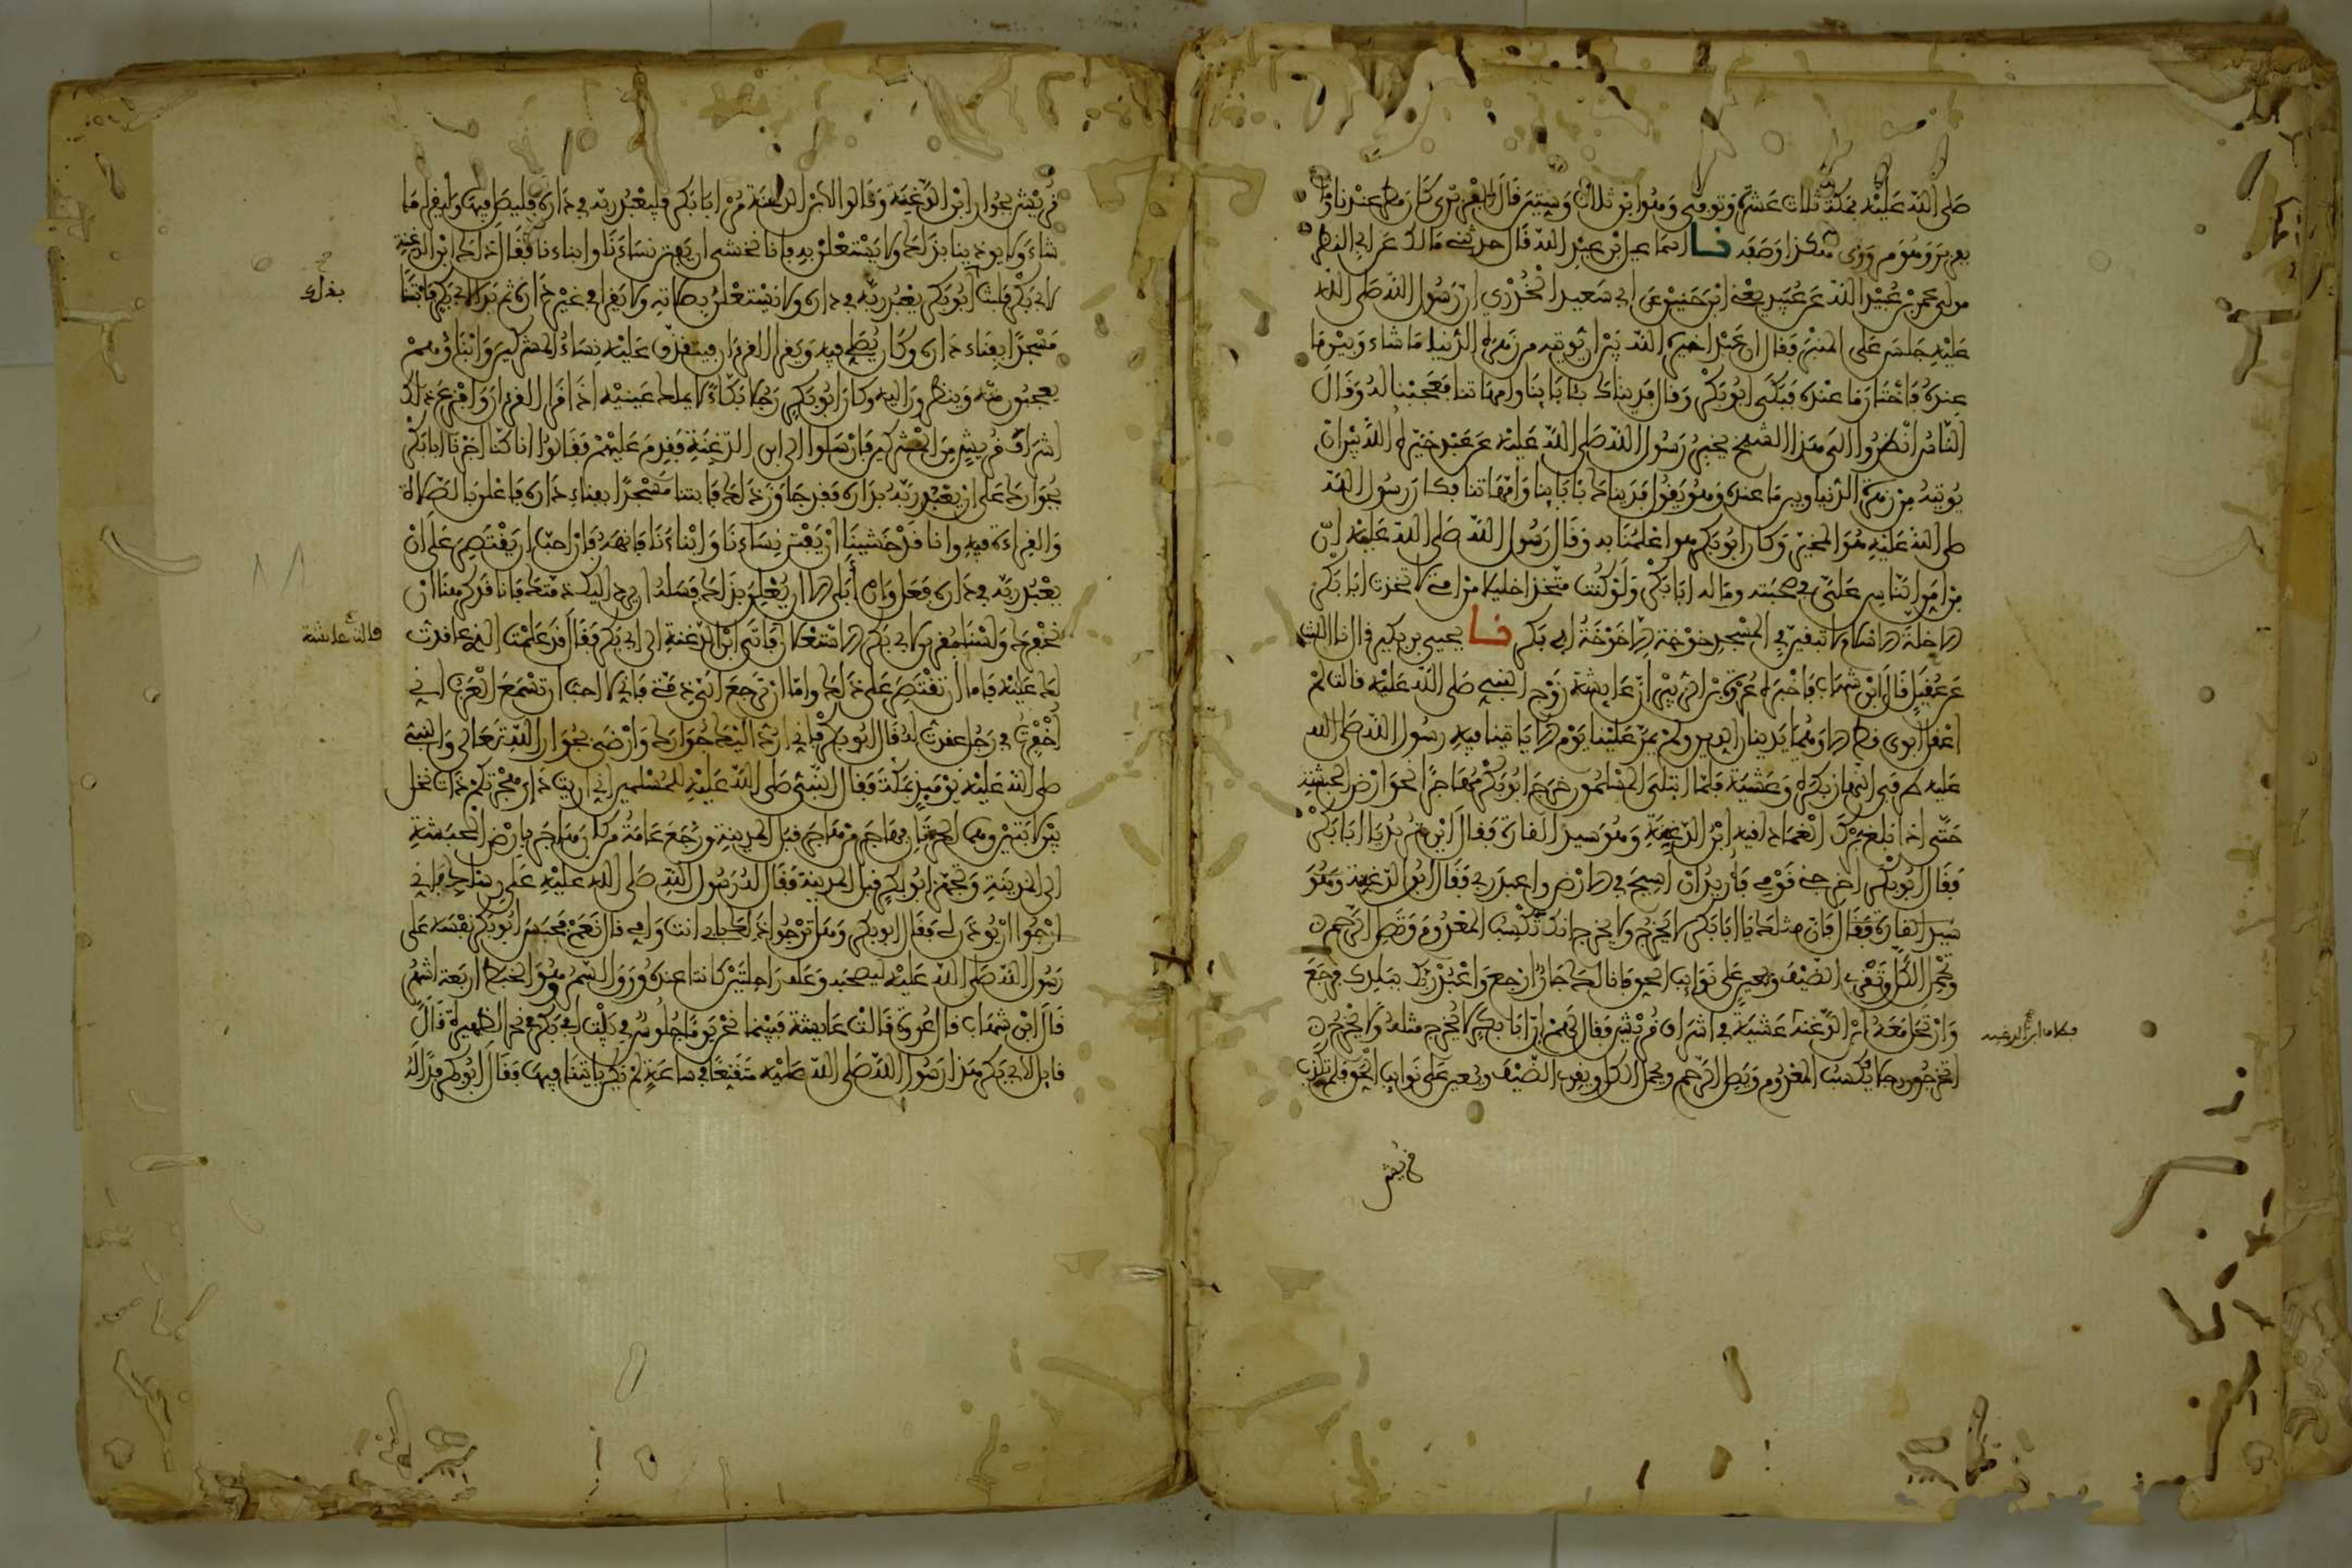 صلى الله عليه بمكة ثلاث عشرة وتوفي وهو ابن ثلاث وستين قال
هكذا وصفه نا اسماعيل ابن عبد الله قال حدثني مالك عن ابي النضر
مولى عمر بن عبيد الله عن عبيد يعني ابن حنين عن ابي سعيد الخدري ان رسول الله صلى الله
عليه جلس على المنبر فقال ان عبدا خيره الله بين ان يوتيه من زهرة الدنيا ما شاء وبين ما
عنده فاختار ما عنده فبكى ابو بكر وقال فديناك بئابائنا وامهاتنا فعجبنا له وقال
الناس انظروا الى هذا الشيخ يخبر رسول الله صلى الله عليه عن عبد خيره الله بين ان
يوتيه من زهرة الدنيا وبين ما عنده وهو يقول فديناك بئابائنا وامهاتنا فكان رسول الله
صلى الله عليه هو المخير وكان ابو بكر هو اعلمنا به وقال رسول الله صلى الله عليه ان
من امن الناس علي في صحبته وماله ابا بكر ولو كنت متخذا خليلا من امتي لاتخذت ابا بكر
الا خلة الاسلام لا تبقين في المسجد خوخة الا خوخة ابي بكر نا يحيى بن بكير قال نا الليث
عن عقيل قال ابن شهاب فاخبرني عروة بن الزبير ان عايشة زوج النبي صلى الله عليه قالت لم
اعقل ابوي قط الا وهما يدينان الدين ولم يمر علينا يوم الا ياتينا فيه رسول الله صلى الله
عليه طرفي النهار بكرة وعشية فلما ابتلي المسلمون خرج ابو بكر مهاجرا نحو ارض الحبشة
حتى اذا بلغ برك الغماد لقيه ابن الدغنة وهو سيد القارة فقال اين تريد يا ابا بكر
فقال ابو بكر اخرجني قومي فاريد ان اسيح في الارض واعبد ربي فقال ابن الدغنة وهو
سيد القارة فقال فان مثلك يا ابا بكر لا يخرج ولا يخرج انك تكسب المعدوم وتصل الرحم
وتحمل الكل وتقري الضيف وتعين على نوائب الحق فانا لك جار ارجع واعبد ربك ببلدك فرجع
وارتحل معه ابن الدغنة عشية في اشراف قريش فقال لهم ان ابا بكر لا يخرج مثله ولا يخرج
اتخرجون رجلا يكسب المعدوم ويصل الرحم ويحمل الكل ويقري الضيف ويعين على نوائب الحق فلم تكذب
قريش
قريش بجوار ابن الدغنة وقالوا لابن الدغنة مر ابا بكر فليعبد ربه في داره فليصل فيها وليقرا ما
شاء ولا يوذينا بذلك ولا يستعلن به فانا نخشى ان يفتن نساءنا وابناءنا فقال ذلك ابن الدغنة
لابي بكر فلبث ابو بكر يعبد ربه في داره ولا يستعلن بصلاته ولا يقرا في غير داره ثم بدا لابي بكر فابتنا
مسجدا بفناء داره وكان يصلي فيه ويقرا القرءان فيتقذف عليه نساء المشركين وابناؤهم
يعجبون منه وينظرون اليه وكان ابو بكر رجلا بكاء لا يملك عينيه اذا قرا القرءان وافزع ذلك
اشراف قريش من المشركين فارسلوا الى ابن الدغنة فقدم عليهم فقالوا انا كنا اجرنا ابا بكر
بجوارك على ان يعبد ربه بداره فقد جاوز ذلك فابتنا مسجدا بفناء داره فاعلن بالصلاة
والقراءة فيه وانا قد خشينا ان يفتن نساءنا وابناءنا فانهه فان احب ان يقتصر على ان
يعبد ربه في داره فعل وان ابى الا ان يعلن بذلك فسله ان يرد اليك ذمتك فانا قد كرهنا ان
نخفرك ولسنا مقرين لابي بكر الاستعلان فاتى ابن الدغنة الى ابي بكر فقال قد علمت الذي عاقدت
قالت عايشة
لك عليه فاما ان تقتصر على ذلك واما ان ترجع الي ذمتي فاني لا احب ان تسمع العرب اني
اخفرت في رجل عقدت له فقال ابو بكر فاني ارد اليك جوارك وارضى بجوار الله تعالى والنبي
صلى الله عليه يومئذ بمكة فقال النبي صلى الله عليه للمسلمين اني اريت دار هجرتكم ذات نخل
بين لابتين وهما الحرتان فهاجر من هاجر قبل المدينة ورجع عامة من كان هاجر بارض الحبشة
الى المدينة وتجهز ابو بكر قبل المدينة فقال له رسول الله صلى الله عليه على رسلك فاني
ارجوا ان يوذن لي فقال ابو بكر وهل ترجوا ذلك بابي انت وامي قال نعم فحبس ابو بكر نفسه على
رسول الله صلى الله عليه ليصحبه وعلف راحلتين كانتا عنده ورق السمر وهو الخبط اربعة اشهر
قال ابن شهاب قال عروة قالت عايشة فبينما نحن يوما جلوس في بيت ابي بكر في نحر الظهيرة قال
قايل لابي بكر هذا رسول الله صلى الله عليه متقنعا في ساعة لم يكن ياتينا فيها فقال ابو بكر فدا له